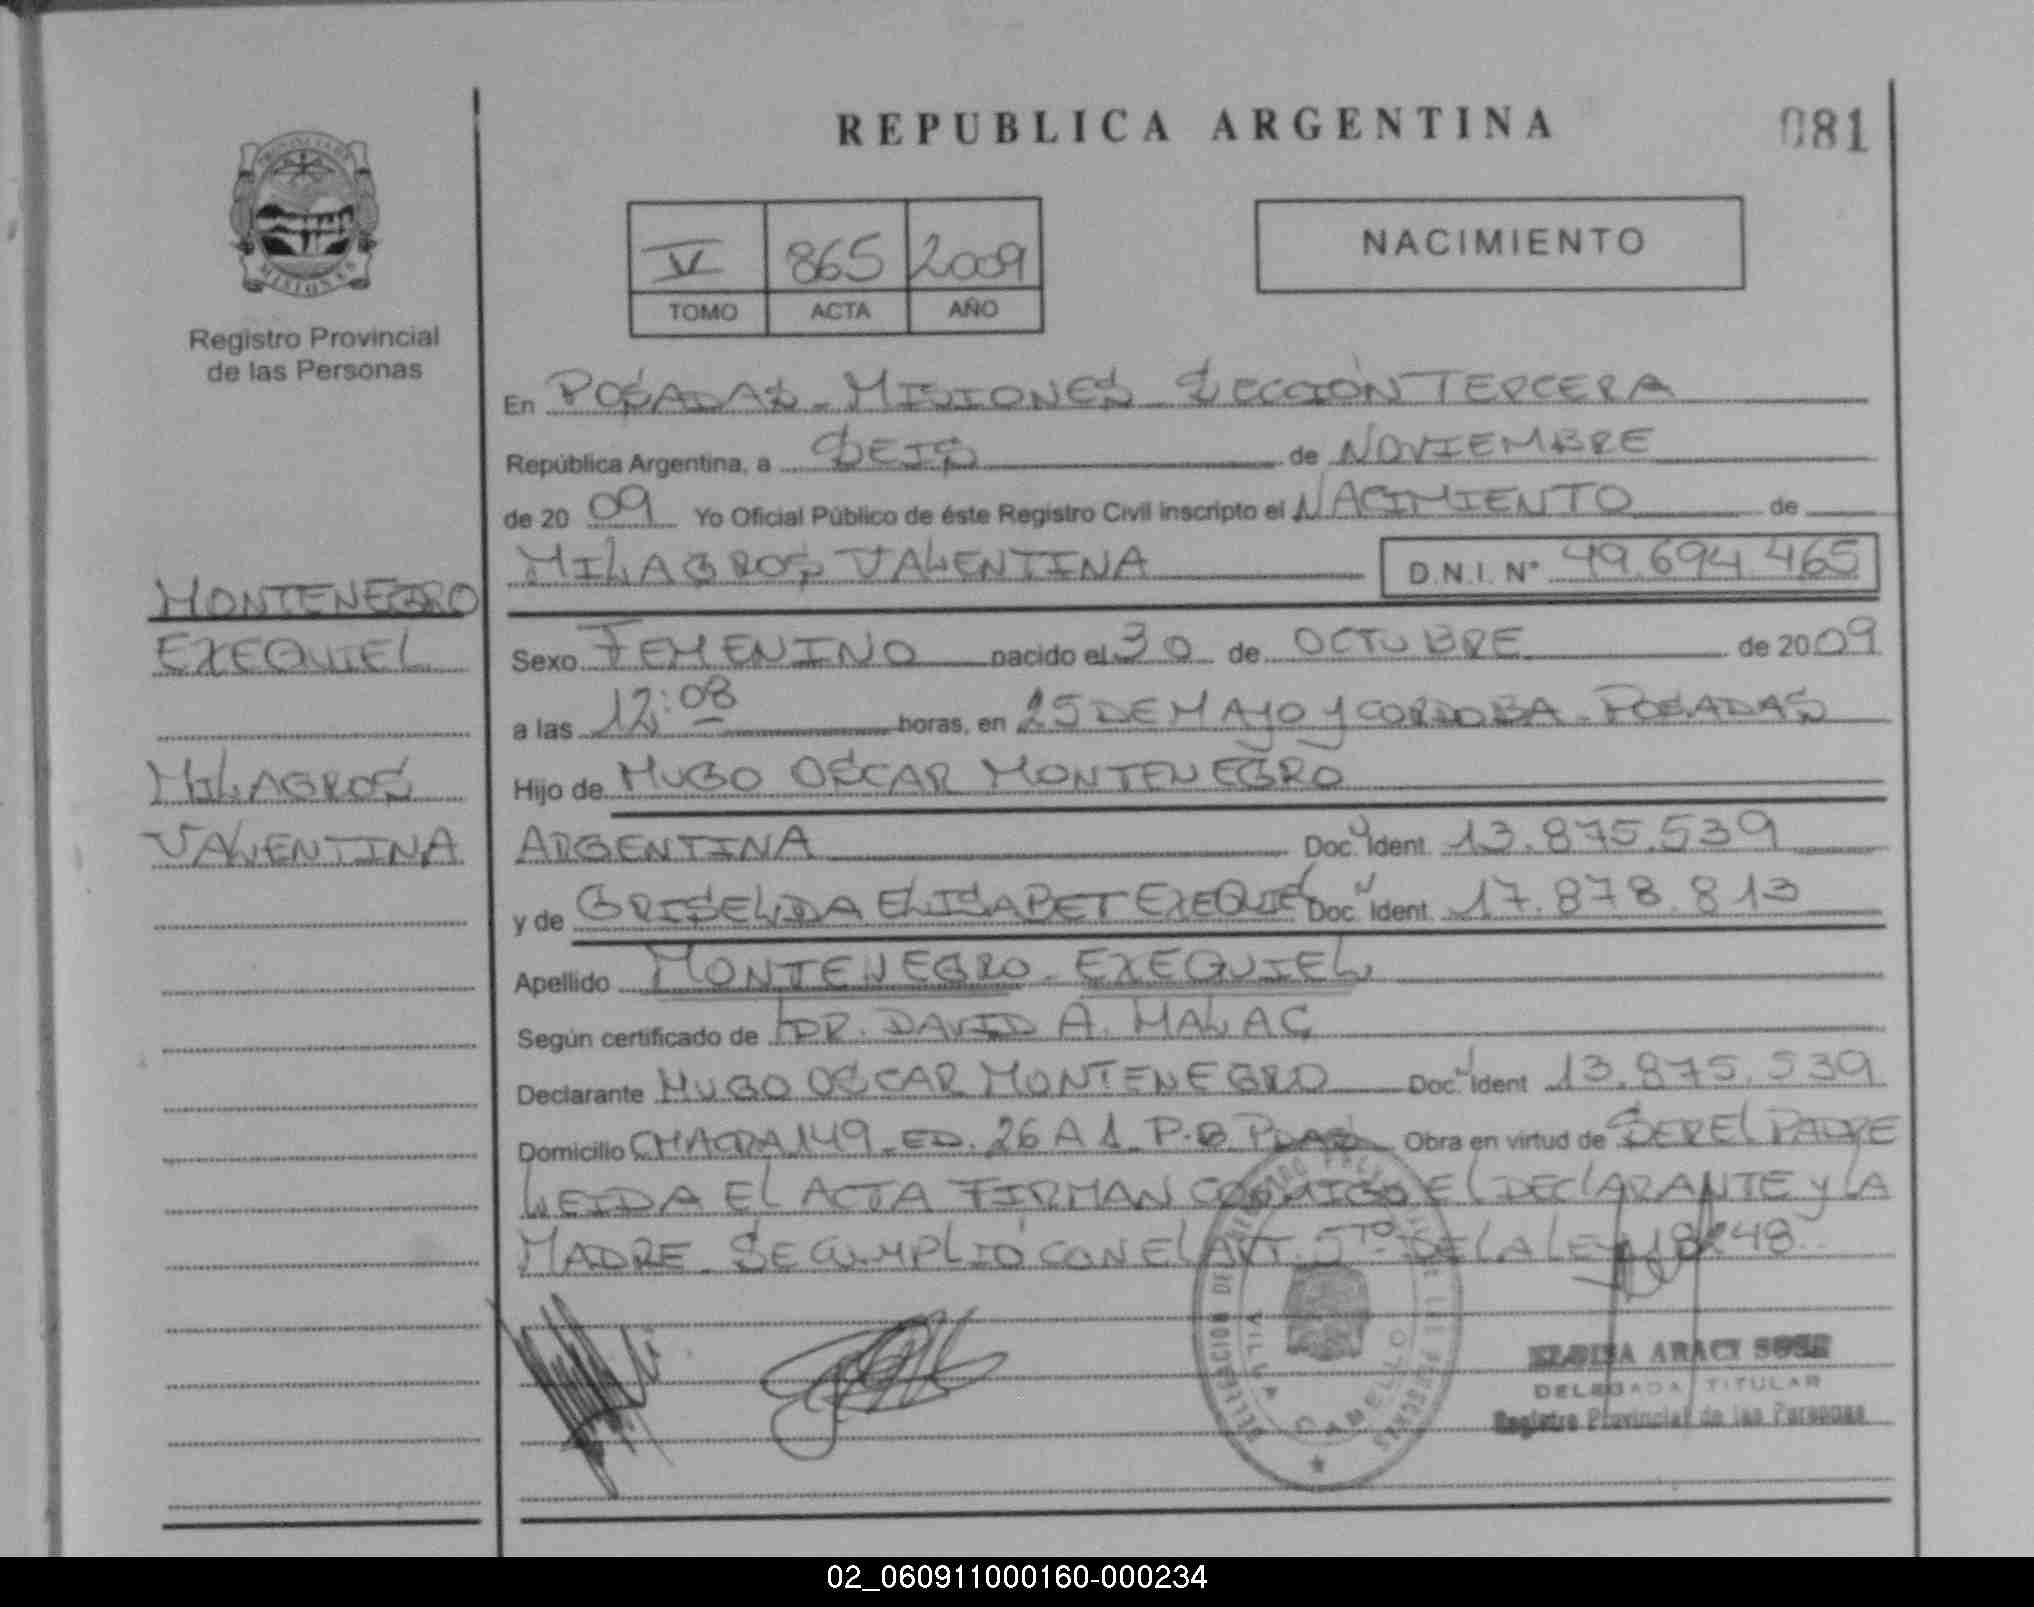 REPUBLICA ARGENTINA
081
PROVINCIA DE
MISIONES
Registro Provincial
de las Personas
V 865 2009
TOMO ACTA AÑO
NACIMIENTO
En POSADAS - MISIONES - SECCIÓN TERCERA
República Argentina, a SEIS de NOVIEMBRE
de 20 09 Yo Oficial Público de éste Registro Civil inscripto el NACIMIENTO de
MILAGROS VALENTINA D.N.I. Nº 49.694.465
MONTENEGRO
EXEQUIEL
MILAGROS
VALENTINA
Sexo FEMENINO nacido el 30 de OCTUBRE de 20 09
a las 12:08 horas, en 25 DE MAYO Y CORDOBA - POSADAS
Hijo de HUGO OSCAR MONTENEGRO
ARGENTINA Doc. Ident. 13.875.539
y de GRISELDA ELISABET EXEQUIEL Doc. Ident. 17.878.813
Apellido MONTENEGRO - EXEQUIEL
Según certificado de DR. DAVID A. MALAC
Declarante HUGO OSCAR MONTENEGRO Doc. Ident 13.875.539
Domicilio CHACRA 149 - ED. 26 A 1 P.B. PDAS Obra en virtud de SER EL PADRE
LEIDA EL ACTA FIRMAN CONMIGO EL DECLARANTE Y LA
MADRE - SE CUMPLIÓ CON EL ART. 5TO DE LA LEY 18248.
VILLA CABELLO
ARACI SOSA
DELEGADA TITULAR
Registro Provincial de las Personas
02_060911000160-000234